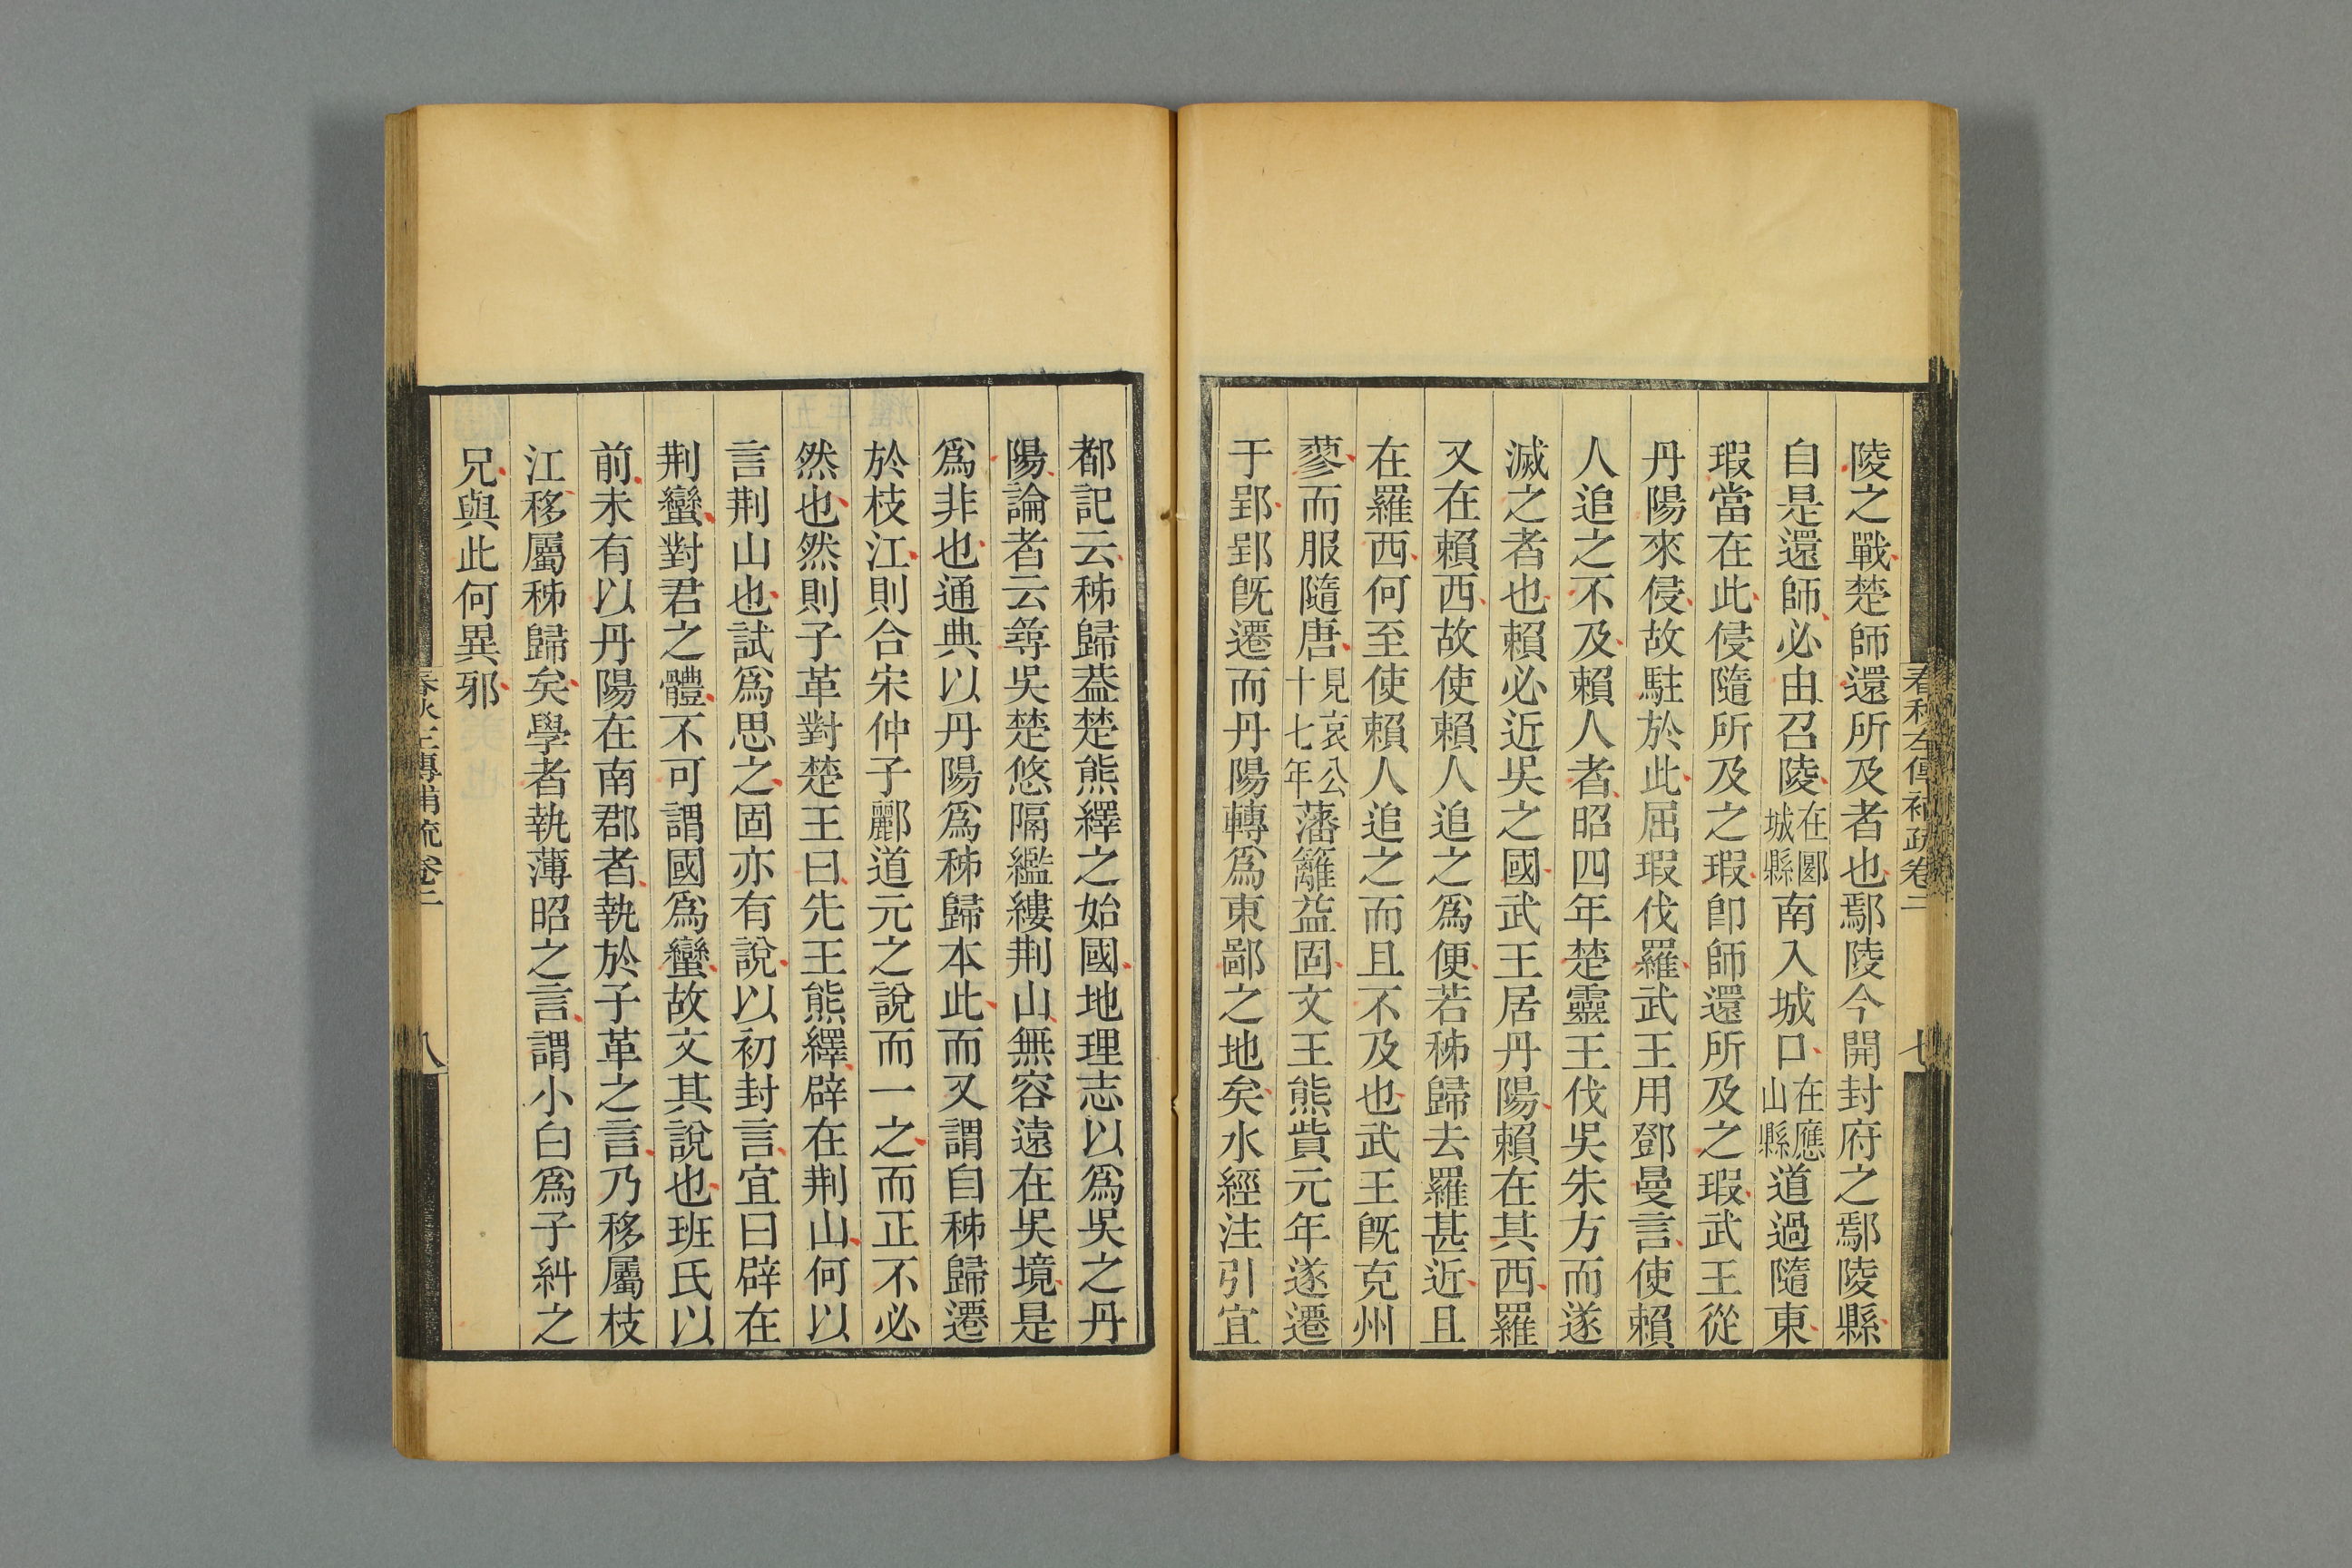 陵之戰楚師還所及者也鄢陵今開封府之鄢陵縣
自是還師必由召陵在郾城縣南入城口在應山縣道過隨東
瑕當在此侵隨所及之瑕卽師還所及之瑕武王從
丹陽來侵故駐於此屈瑕伐羅武王用鄧曼言使賴
人追之不及賴人者昭四年楚靈王伐吳朱方而遂
滅之者也賴必近吳之國武王居丹陽賴在其西羅
又在賴西故使賴人追之爲便若秭歸去羅甚近且
在羅西何至使賴人追之而且不及也武王旣克州
蓼而服隨唐見哀公十七年藩籬益固文王熊貲元年遂遷
于郢郢旣遷而丹陽轉爲東鄙之地矣水經注引宜
都記云秭歸葢楚熊繹之始國地理志以爲吳之丹
陽論者云尋吳楚悠隔繿縷荆山無容遠在吳境是
爲非也通典以丹陽爲秭歸本此而又謂自秭歸遷
於枝江則合宋仲子酈道元之說而一之而正不必
然也然則子革對楚王曰先王熊繹辟在荆山何以
言荆山也試爲思之固亦有說以初封言宜曰辟在
荆蠻對君之體不可謂國爲蠻故文其說也班氏以
前未有以丹陽在南郡者執於子革之言乃移屬枝
江移屬秭歸矣學者執薄昭之言謂小白爲子糾之
兄與此何異邪
春秋左傳補疏卷二
八
春秋左傳補疏卷二
七